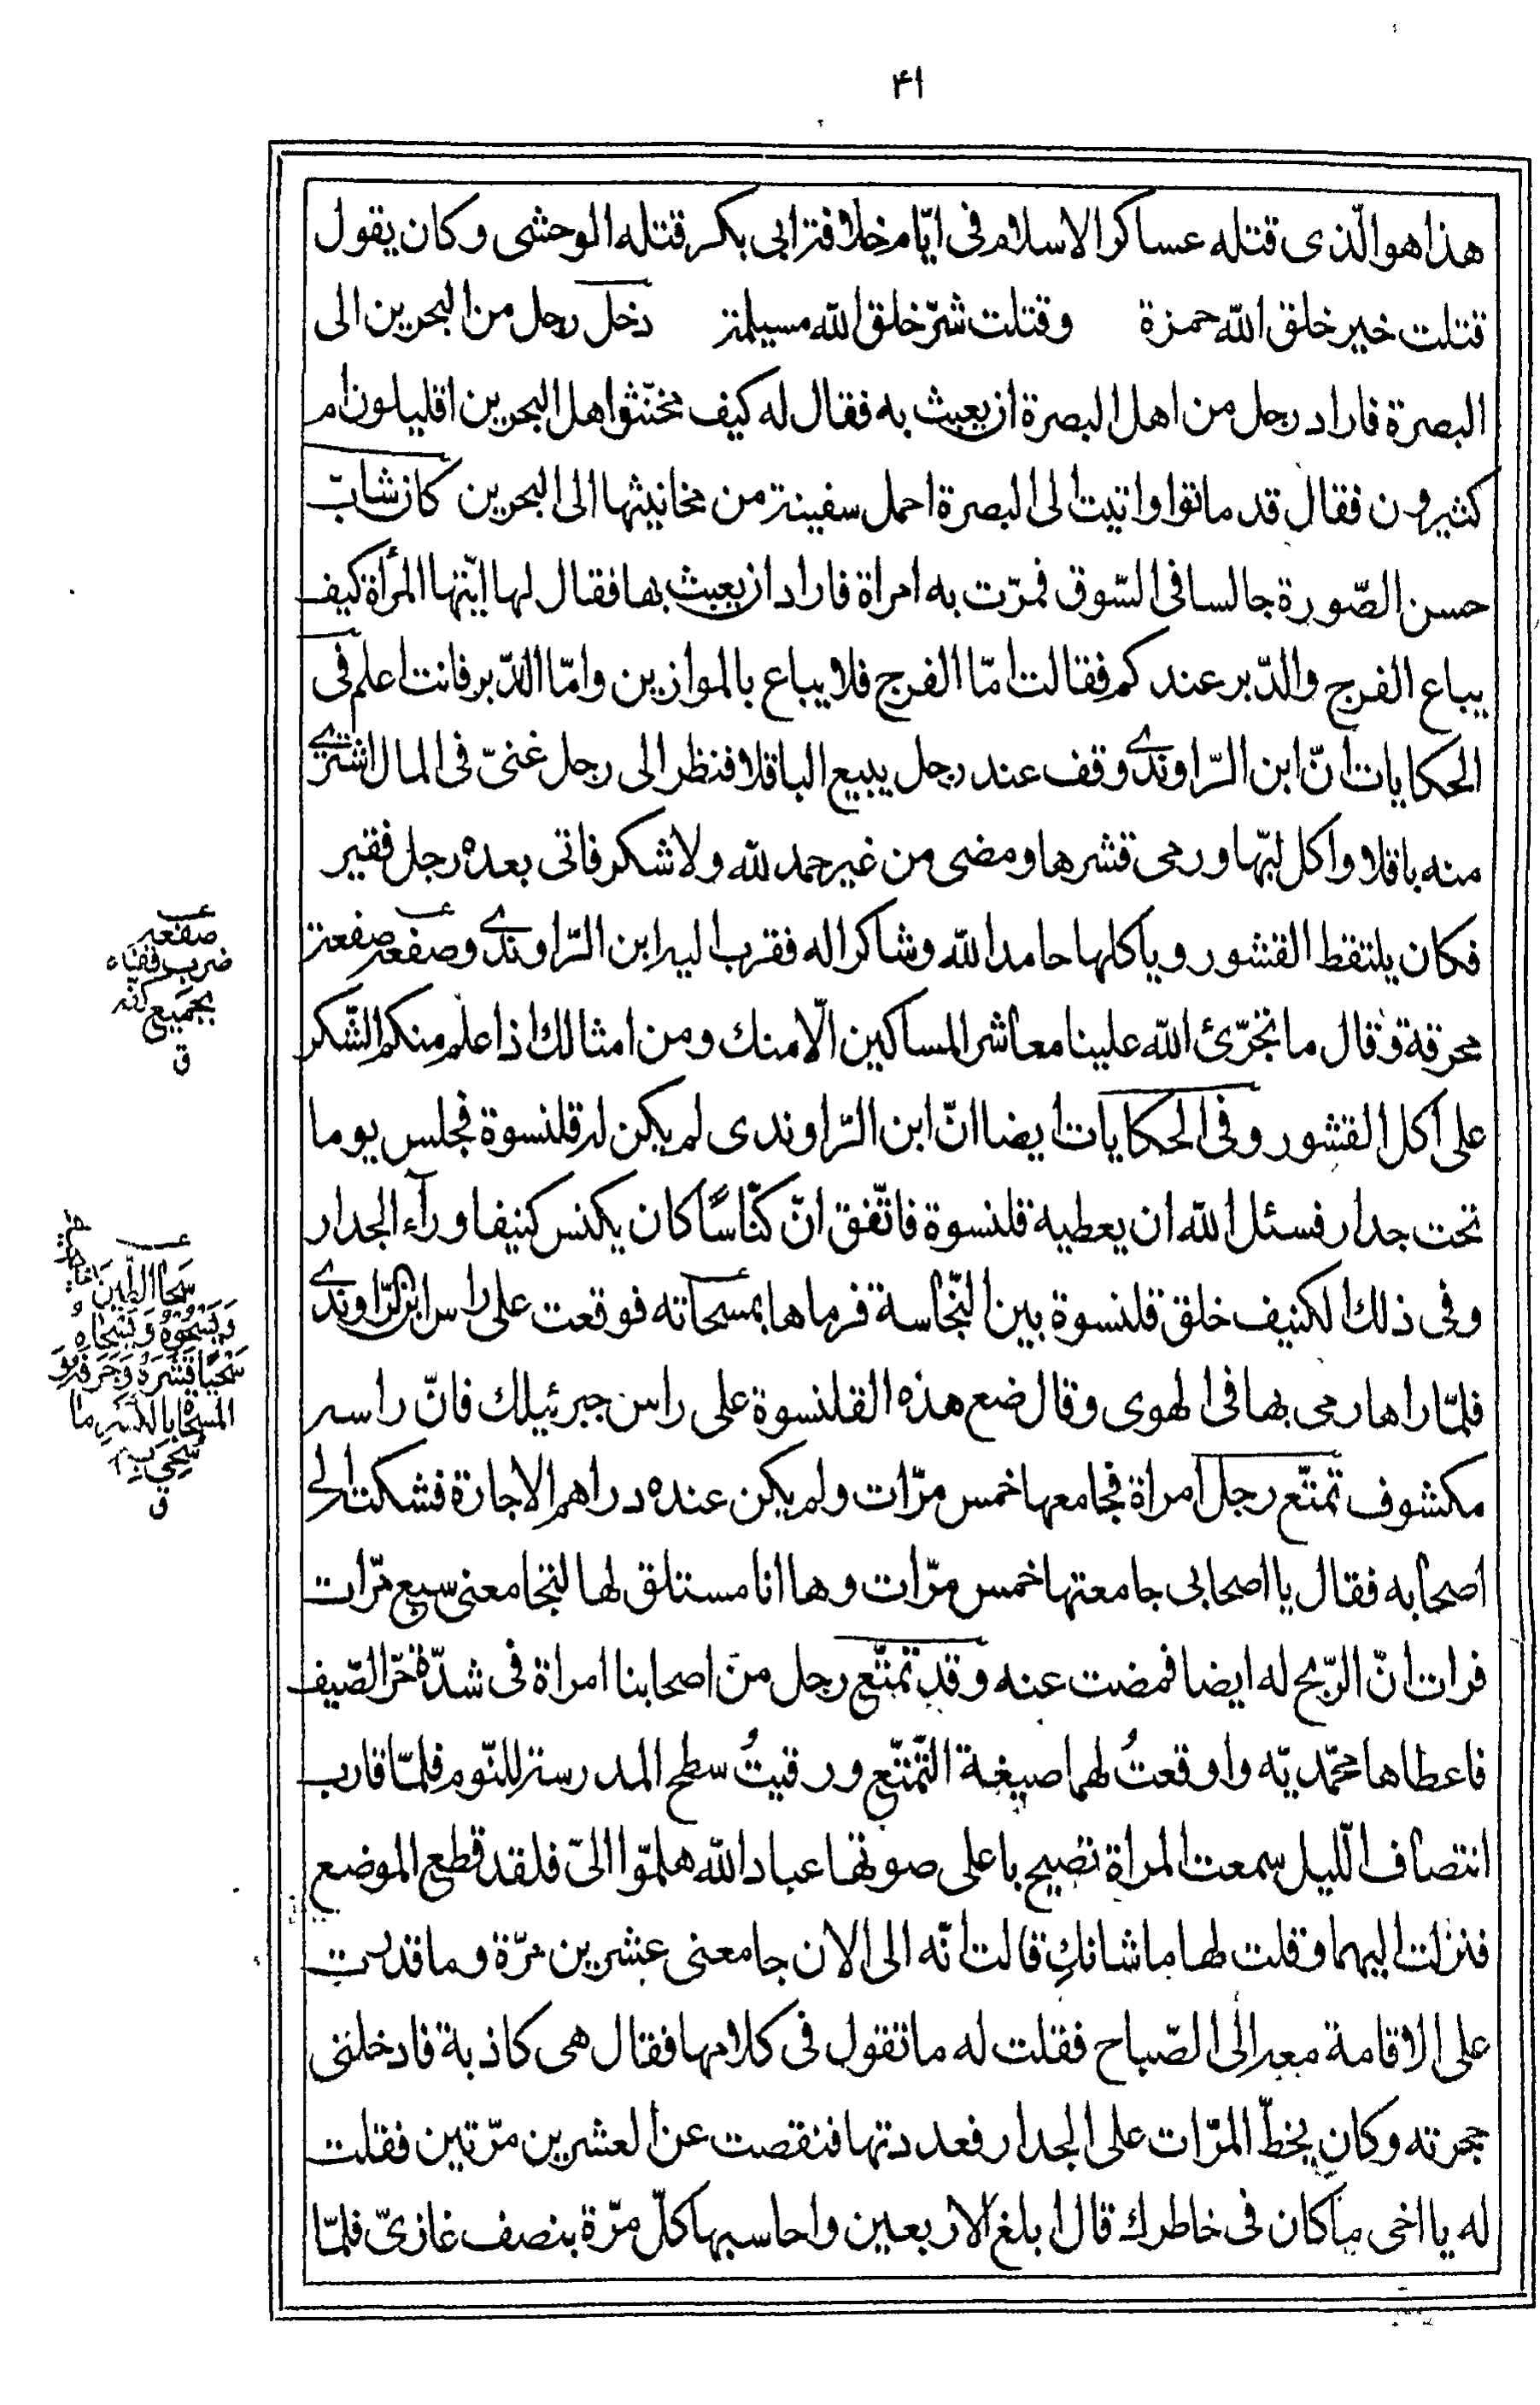 ۴۱
هذا هو الّذى قتله عساكر الاسلام فى ايّام خلافة ابى بكر قتله الوحشى وكان يقول
قتلت خير خلق الله حمزة وقتلت شرّ خلق الله مسيلمة دخل رجل من البحرين الى
البصرة فاراد رجل من اهل البصرة ان يعبث به فقال له كيف مخنّثوا اهل البحرين اقليلون ام
كثيرون فقال قد ماتوا واتيت الى البصرة احمل سفينة من مخانيثها الى البحرين كان شابّ
حسن الصّورة جالسا فى السّوق فمرّت به امراة فاراد ان يعبث بها فقال لها ايّتها المرأة كيف
يباع الفرج والدّبر عندكم فقالت امّا الفرج فلا يباع بالموازين وامّا الدّبر فانت اعلم فى
الحكايات انّ ابن الرّاوندى وقف عند رجل يبيع الباقلا فنظر الى رجل غنىّ فى المال اشترى
منه باقلا واكل لبّها ورمى قشرها ومضى من غير حمد لله ولا شكر فاتى بعده رجل فقير
فكان يلتقط القشور وياكلها حامدا لله وشاكرا له فقرب اليه ابن الرّاوندى وصفعه صفعة
محرقة وقال ما تجرّئ الله علينا معاشر المساكين الّا منك ومن امثالك اذا علم منكم الشّكر
على اكل القشور وفى الحكايات ايضا انّ ابن الرّاوندى لم يكن له قلنسوة فجلس يوما
تحت جدار فسئل الله ان يعطيه قلنسوة فاتّفق انّ كنّاسًا كان يكنس كنيفا ورآء الجدار
وفى ذلك الكنيف خلق قلنسوة بين النّجاسة فرماها بمسحاته فوقعت على راس ابن الرّاوندى
فلمّا راها رمى بها فى الهوى وقال ضع هذه القلنسوة على راس جبرئيلك فانّ راسه
مكشوف تمتّع رجل امراة فجامعها خمس مرّات ولم يكن عنده دراهم الاجارة فشكت الى
اصحابه فقال يا اصحابى جامعتها خمس مرّات وها انا مستلق لها لتجامعنى سبع مرّات
فرات انّ الرّبح له ايضا فمضت عنه وقد تمتّع رجل من اصحابنا امراة فى شدّة حرّ الصّيف
فاعطاها محمّديّه واوقعتُ لهما صيغة التّمتّع ورقيتُ سطح المدرسة للنّوم فلمّا قارب
انتصاف الّليل سمعت المراة تصيح باعلى صوتها عباد الله هلمّوا الىّ فلقد قطع الموضع
فنزلت اليهما وقلت لها ما شانكِ قالت انّه الى الان جامعنى عشرين مرّة وما قدرت
على الاقامة معه الى الصّباح فقلت له ما تقول فى كلامها فقال هى كاذبة فادخلنى
حجرته وكان يخطّ المرّات على الجدار فعددتها فنقصت عن العشرين مرّتين فقلت
له يا اخى ما كان فى خاطرك قال ابلغ الاربعين واحاسبها كلّ مرّة بنصف غازىّ فلمّا
صفعه
ضرب قفاه
بجميع كفّه
ق
سَحَا الطِّينَ
وَيَسْحُوهُ وَيَسْحَاهُ
سَحْيًا قَشَرَهُ وَجَرَفَهُ وَ
المِسْحَاة بالكَسْرِ ما
سُحِىَ بِهِ
ق